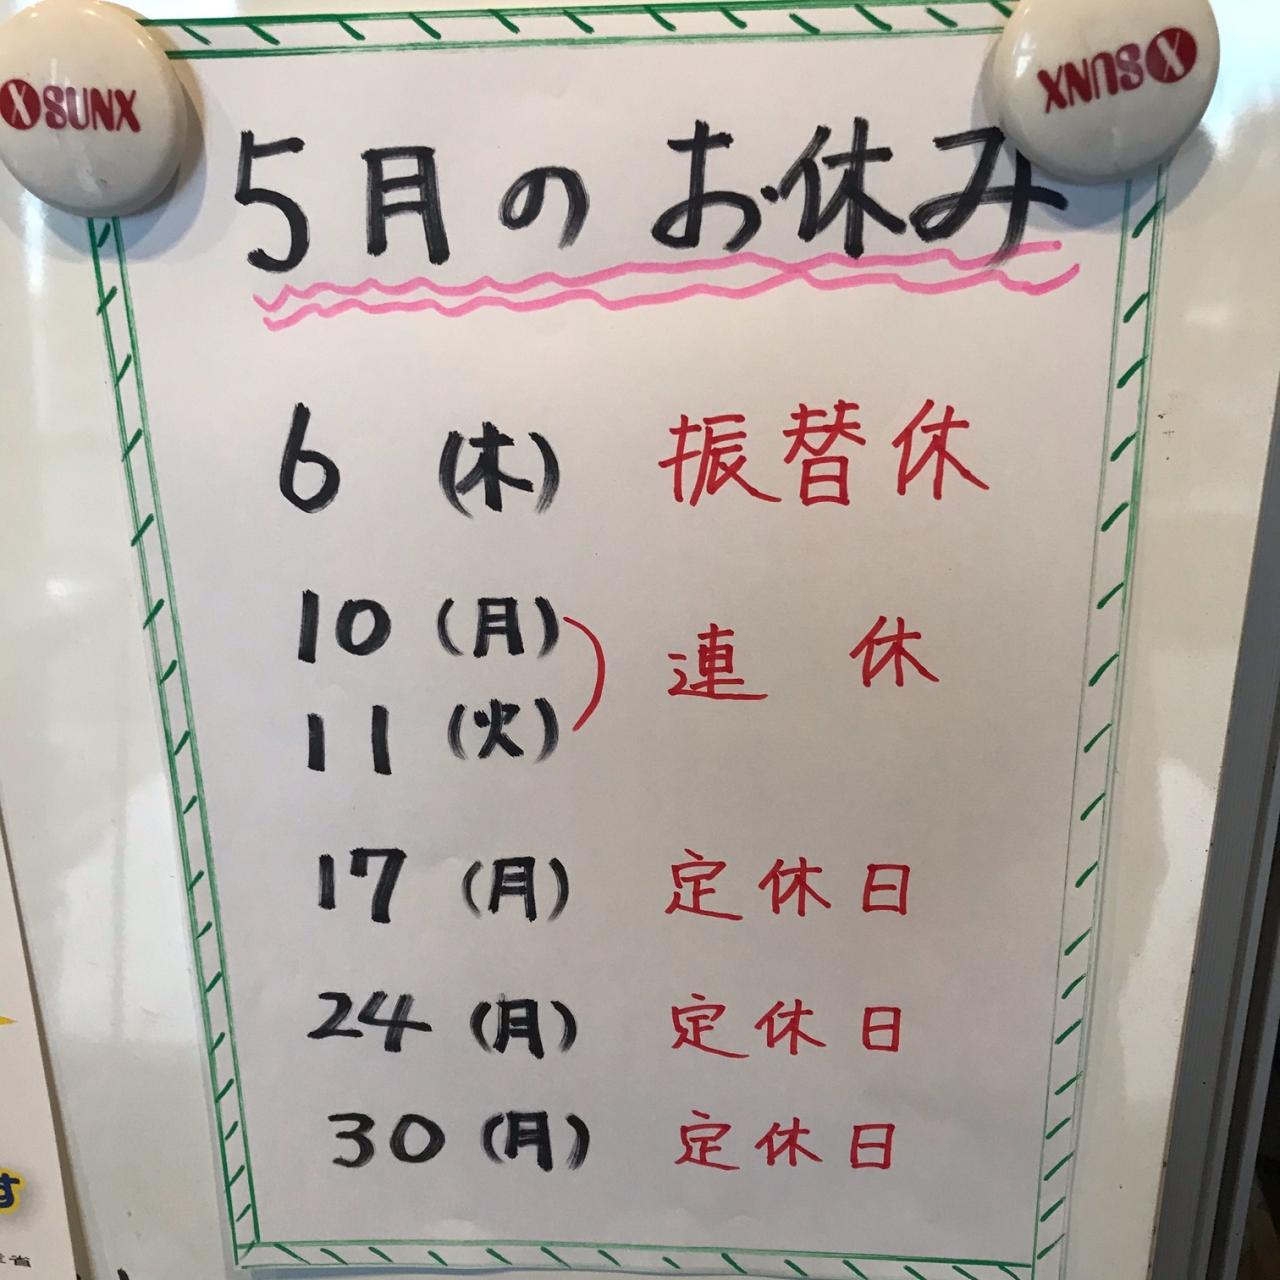 SUNX
SUNX
5月のお休み
6 (木) 振替休
10 (月) 連休
11 (火)
17 (月) 定休日
24 (月) 定休日
30 (月) 定休日
す
省